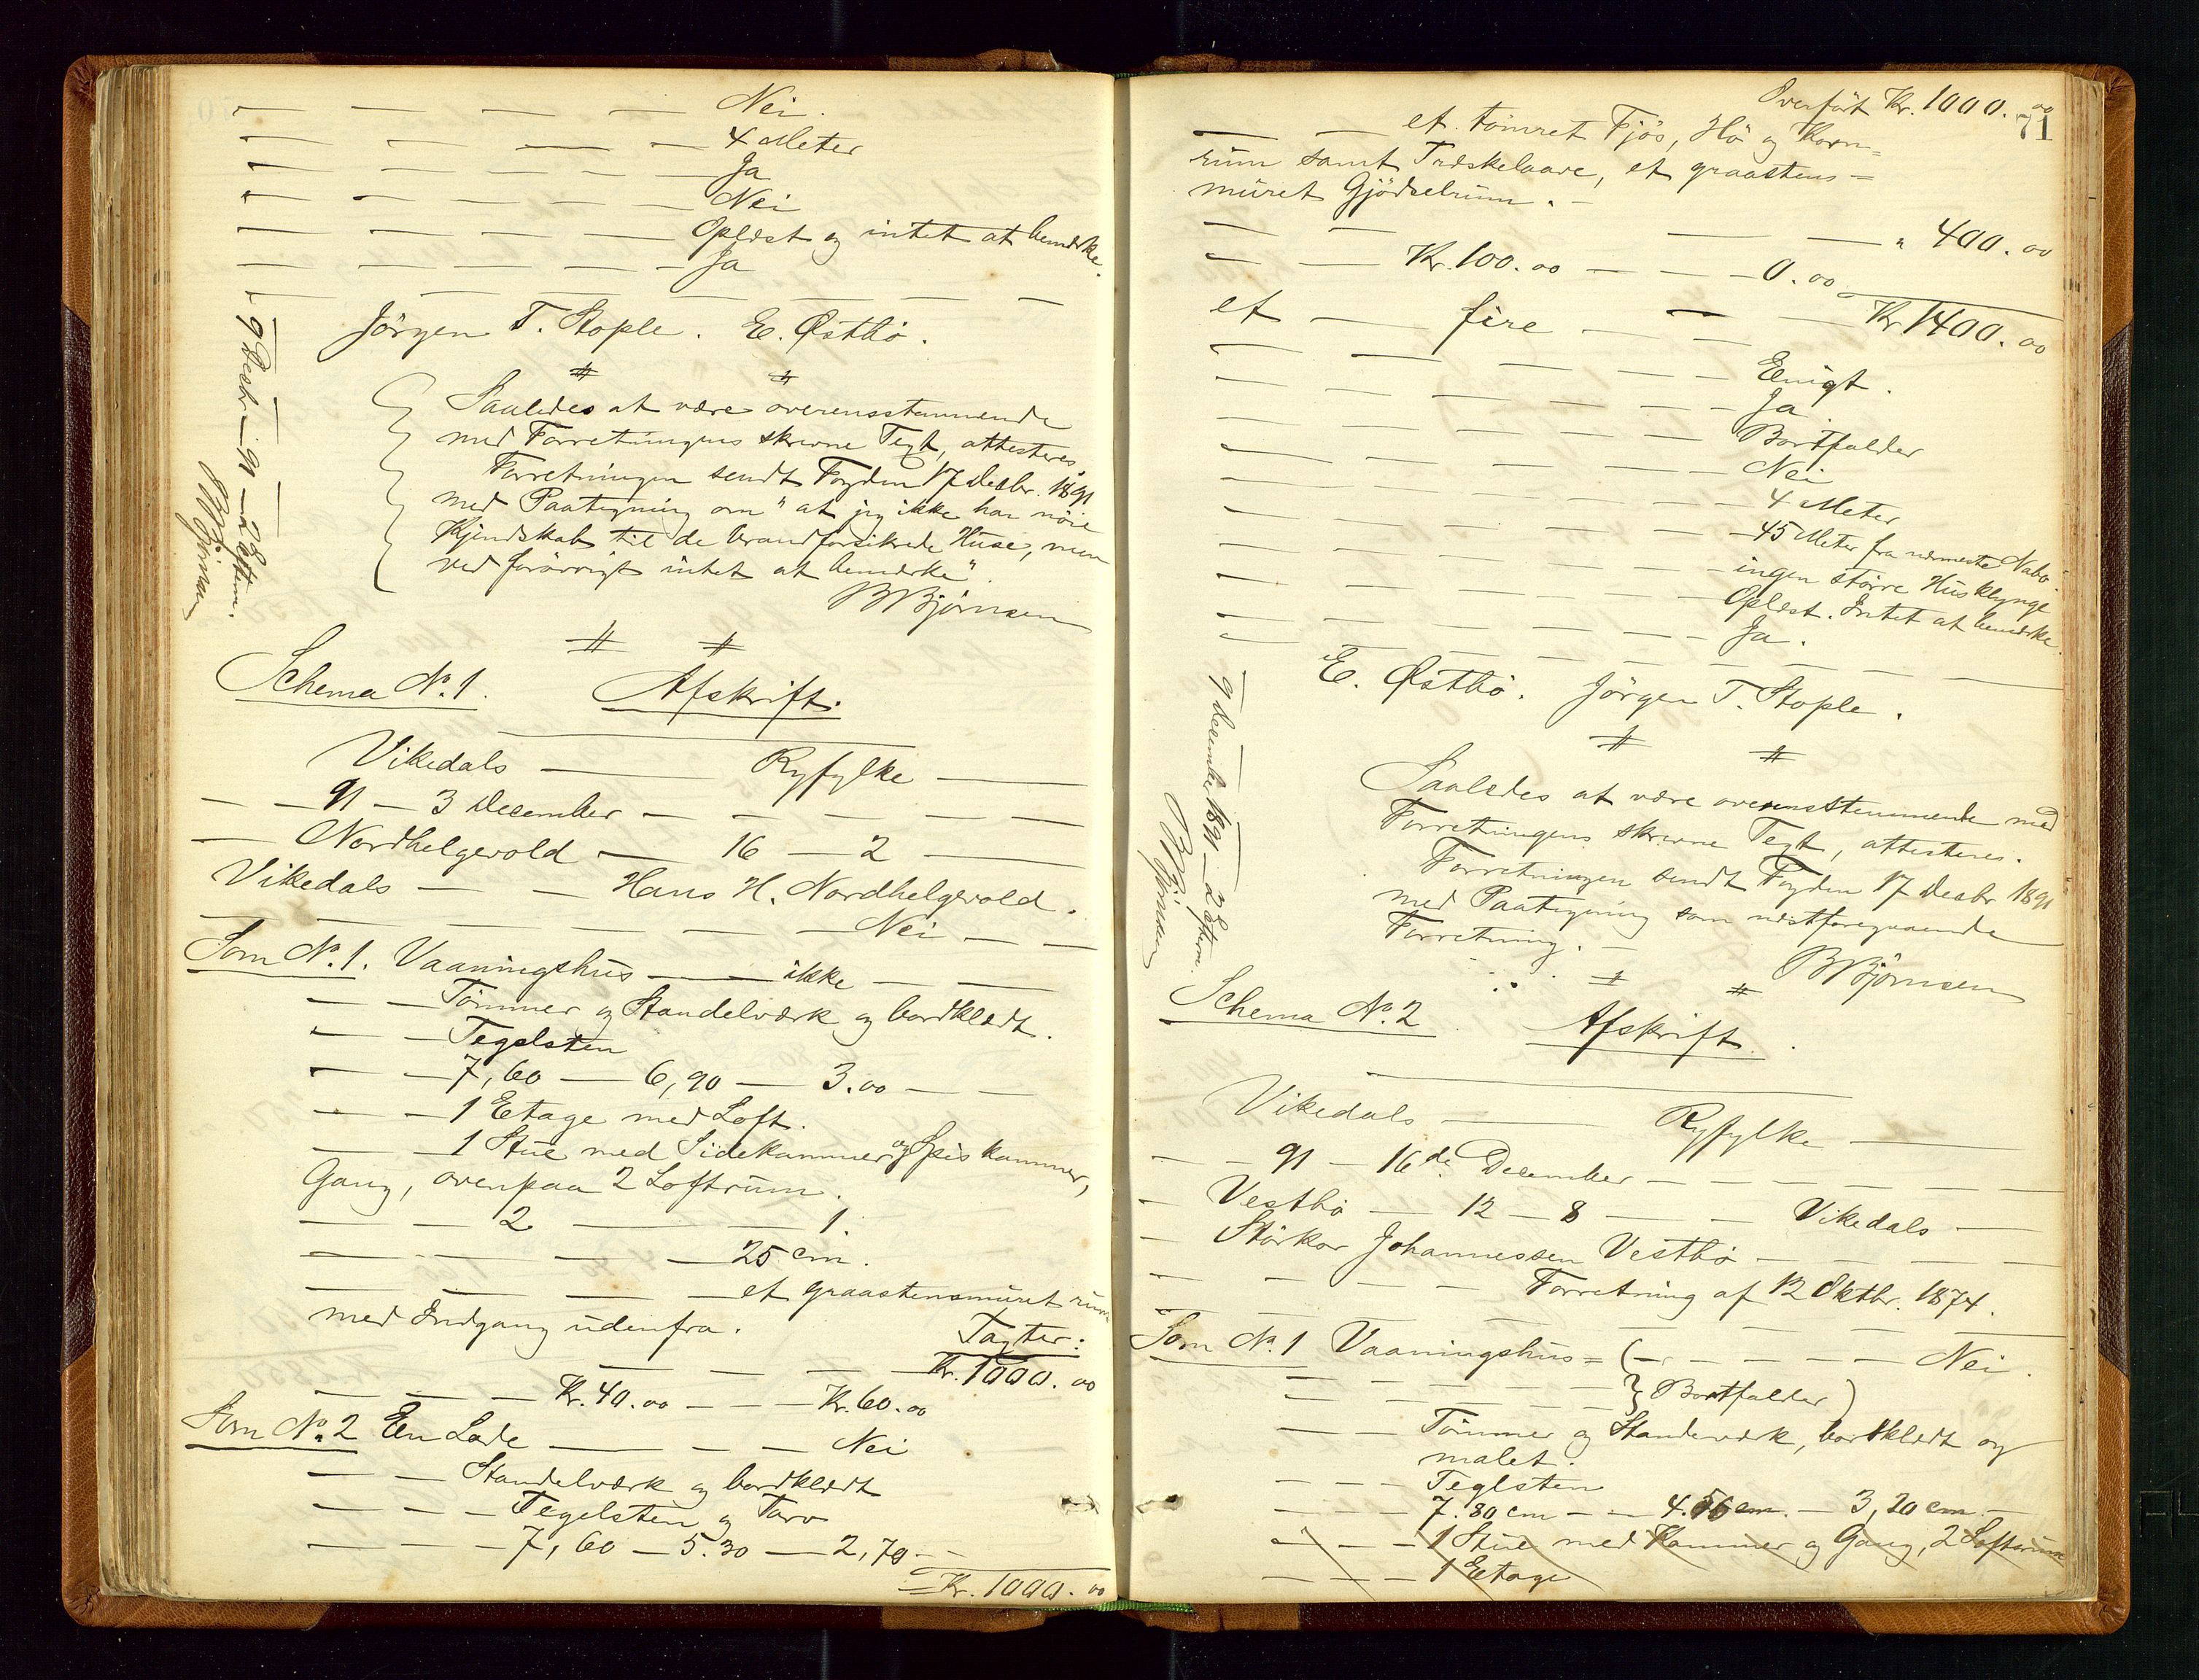 — — — — — Nei.
— — — — — 4 Meter
— — — — — Ja
— — — — — Nei
— — — — — Oplæst og intet at bemærke.
— — — — — Ja
9 Decbr — 91 — 2 Eftm.
BBjörnsen
Jörgen T. Stople. E. Østbö.
Saaledes at være overensstemmende
med Forretningens skrevne Text, attesteres.
Forretningen sendt Fogden 17 Decbr. 1891
med Paategning om "at jeg ikke har nöie
Kjendskab til de brandforsikrede Huse, men
ved forövrigt intet at bemærke".
BBjörnsen
Schema No. 1. Afskrift.
Vikedals — Ryfylke —
— — 91 — 3 December — — — — —
— Nordhelgevold — 16 — 2 —
Vikedals — — Hans H. Nordhelgevold.
— — — — — — Nei — —
Som No. 1. Vaaningshus — — ikke — —
— — Tömmer og Standelværk og bordklædt.
— — Tegelsten
— — 7,60 — 6,90 — 3.00 — —
— — 1 Etage med Loft.
— — 1 Stue med Sidekammer og Spiskammer,
Gang, ovenpaa 2 Loftrum.
— — 2 — — 1.
— — — — — 25 cm.
— — — — — et graastensmuret rum
med Indgang udenfra.
Taxter:
— — — — Kr. 1000.00
— — — Kr. 40.00 — — — Kr. 60.00
Som No. 2 En Lade — — — Nei
— — Standelværk og bordklædt
— — — Tegelsten og Torv
— — — 7,60 — 5.30 — 2,70 — —
Kr. 1000.00
Overfört Kr. 1000.00
71
— — et tömret Fjös, Hö og Korn=
rum samt Træskelaave, et graastens=
muret Gjödselrum. —
— — — — " 400.00
— — Kr. 100.00 — — — 0.00
Kr 1400.00
et — fire — — —
— — — — — Enigt.
— — — — — Ja.
— — — — — Bortfalder
— — — — — Nei
— — — — — 4 Meter
— — — — — 45 Meter fra nærmeste Nabo
— — — — — ingen större Husklynge
— — — — — Oplæst. Intet at bemærke.
— — — — — Ja.
9 December 1891 — 2 Eftm.
BBjörnsen
E. Østbö. Jörgen T. Stople.
Saaledes at være overensstemmende med
Forretningens skrevne Text, attesteres.
Forretningen sendt Fogden 17 Decbr 1891
med Paategning som næstforegaaende
Forretning. —
BBjörnsen
Schema No. 2 Afskrift.
Vikedals — Ryfylke —
— — 91 — 16de December — — — — —
— Vestbö — 12 — 8 — — Vikedals —
— Störkor Johannessen Vestbö — — — —
— — — — — Forretning af 12 Oktbr. 1874.
Som No. 1 Vaaningshus = (— — — — — — Nei.
— — — — — — } Bortfalder)
— — Tömmer og Standeværk, bordklædt og
malet.
— — — Teglsten
— — — 7.80 cm — — 4.56 cm. — 3,20 cm. —
— — — 1 Stue med Kammer og Gang, 2 Loftrum
— — — 1 Etage